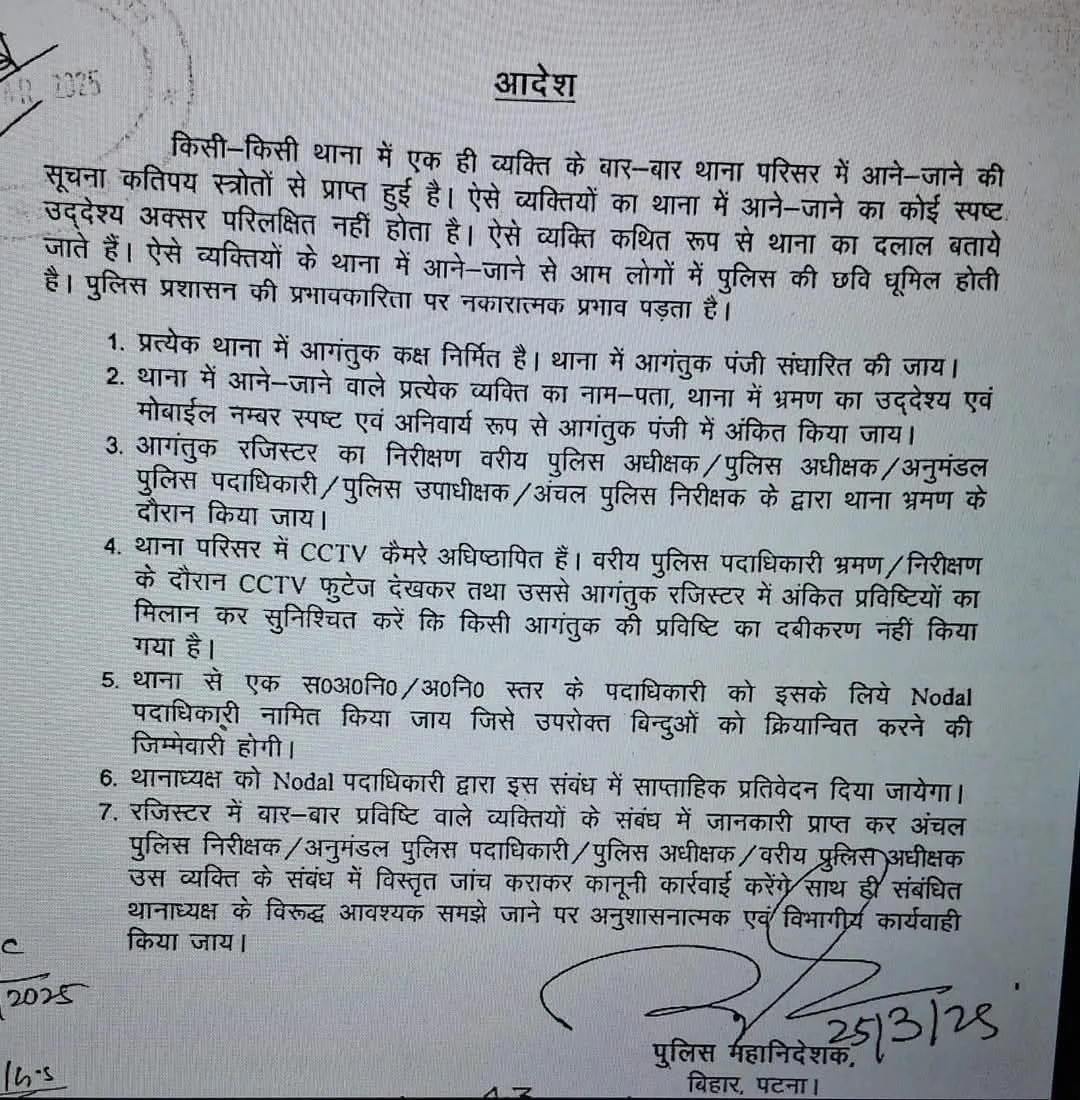 AR 2025
आदेश
किसी–किसी थाना में एक ही व्यक्ति के बार–बार थाना परिसर में आने–जाने की
सूचना कतिपय स्त्रोतों से प्राप्त हुई है। ऐसे व्यक्तियों का थाना में आने–जाने का कोई स्पष्ट
उद्देश्य अक्सर परिलक्षित नहीं होता है। ऐसे व्यक्ति कथित रूप से थाना का दलाल बताये
जाते हैं। ऐसे व्यक्तियों के थाना में आने–जाने से आम लोगों में पुलिस की छवि धूमिल होती
है। पुलिस प्रशासन की प्रभावकारिता पर नकारात्मक प्रभाव पड़ता है।
1. प्रत्येक थाना में आगंतुक कक्ष निर्मित है। थाना में आगंतुक पंजी संधारित की जाय।
2. थाना में आने–जाने वाले प्रत्येक व्यक्ति का नाम–पता, थाना में भ्रमण का उद्देश्य एवं
मोबाईल नम्बर स्पष्ट एवं अनिवार्य रूप से आगंतुक पंजी में अंकित किया जाय।
3. आगंतुक रजिस्टर का निरीक्षण वरीय पुलिस अधीक्षक/पुलिस अधीक्षक/अनुमंडल
पुलिस पदाधिकारी/पुलिस उपाधीक्षक/अंचल पुलिस निरीक्षक के द्वारा थाना भ्रमण के
दौरान किया जाय।
4. थाना परिसर में CCTV कैमरे अधिष्ठापित हैं। वरीय पुलिस पदाधिकारी भ्रमण/निरीक्षण
के दौरान CCTV फुटेज देखकर तथा उससे आगंतुक रजिस्टर में अंकित प्रविष्टियों का
मिलान कर सुनिश्चित करें कि किसी आगंतुक की प्रविष्टि का दबीकरण नहीं किया
गया है।
5. थाना से एक स०अ०नि०/अ०नि० स्तर के पदाधिकारी को इसके लिये Nodal
पदाधिकारी नामित किया जाय जिसे उपरोक्त बिन्दुओं को क्रियान्वित करने की
जिम्मेवारी होगी।
6. थानाध्यक्ष को Nodal पदाधिकारी द्वारा इस संबंध में साप्ताहिक प्रतिवेदन दिया जायेगा।
7. रजिस्टर में बार–बार प्रविष्टि वाले व्यक्तियों के संबंध में जानकारी प्राप्त कर अंचल
पुलिस निरीक्षक/अनुमंडल पुलिस पदाधिकारी/पुलिस अधीक्षक/वरीय पुलिस अधीक्षक
उस व्यक्ति के संबंध में विस्तृत जांच कराकर कानूनी कार्रवाई करेंगे साथ ही संबंधित
थानाध्यक्ष के विरूद्ध आवश्यक समझे जाने पर अनुशासनात्मक एवं विभागीय कार्यवाही
किया जाय।
2025
25/3/25
पुलिस महानिदेशक,
बिहार, पटना।